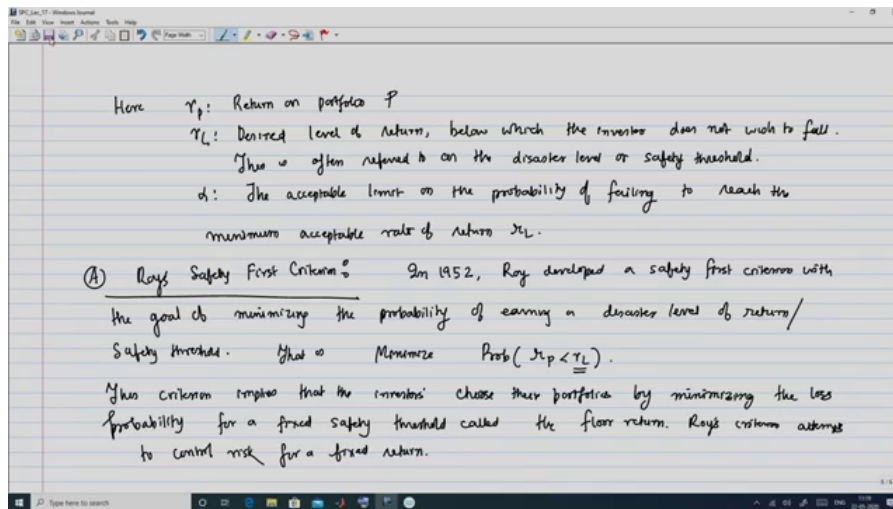 SPC_Lec_17 - Windows Journal
File Edit View Insert Actions Tools Help
Page Width
Here r_P: Return on portfolio P
r_L: Desired level of return, below which the investor does not wish to fall.
This is often referred to as the disaster level or safety threshold.
α: The acceptable limit on the probability of failing to reach the
minimum acceptable rate of return r_L.
(A) Roy's Safety First Criterion: In 1952, Roy developed a safety first criterion with
the goal of minimizing the probability of earning a disaster level of return/
Safety threshold. That is Minimize Prob(r_P < r_L).
This criterion implies that the investors' choose their portfolios by minimizing the loss
probability for a fixed safety threshold called the floor return. Roy's criterion attempts
to control risk for a fixed return.
5/5
Type here to search
ENG